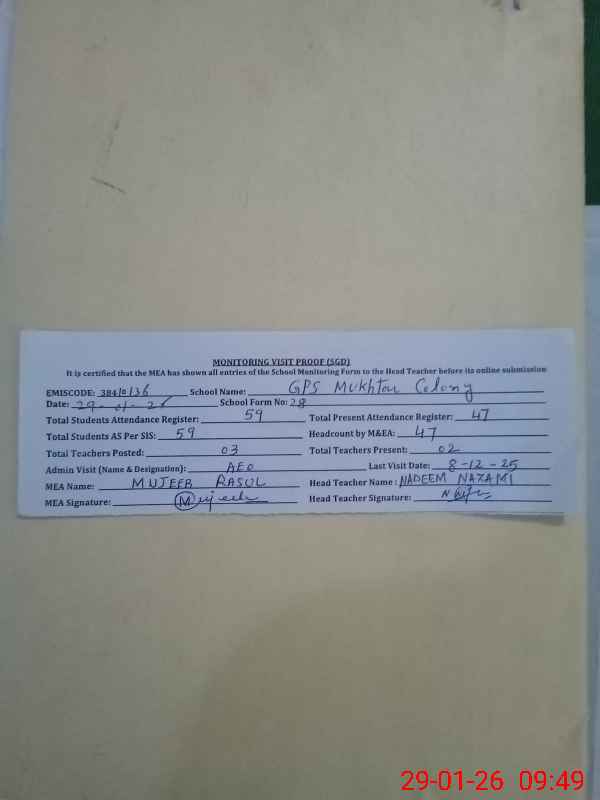 MONITORING VISIT PROOF (SGD)
It is certified that the MEA has shown all entries of the School Monitoring Form to the Head Teacher before its online submission
EMISCODE: 38410136 School Name: GPS Mukhtar Colony
Date: 29-01-26 School Form No: 28
Total Students Attendance Register: 59 Total Present Attendance Register: 47
Total Students AS Per SIS: 59 Headcount by M&EA: 47
Total Teachers Posted: 03 Total Teachers Present: 02
Admin Visit (Name & Designation): AEO Last Visit Date: 8-12-25
MEA Name: MUJEEB RASUL Head Teacher Name: NADEEM NAZAMI
MEA Signature: Mujeeb Head Teacher Signature:
29-01-26 09:49